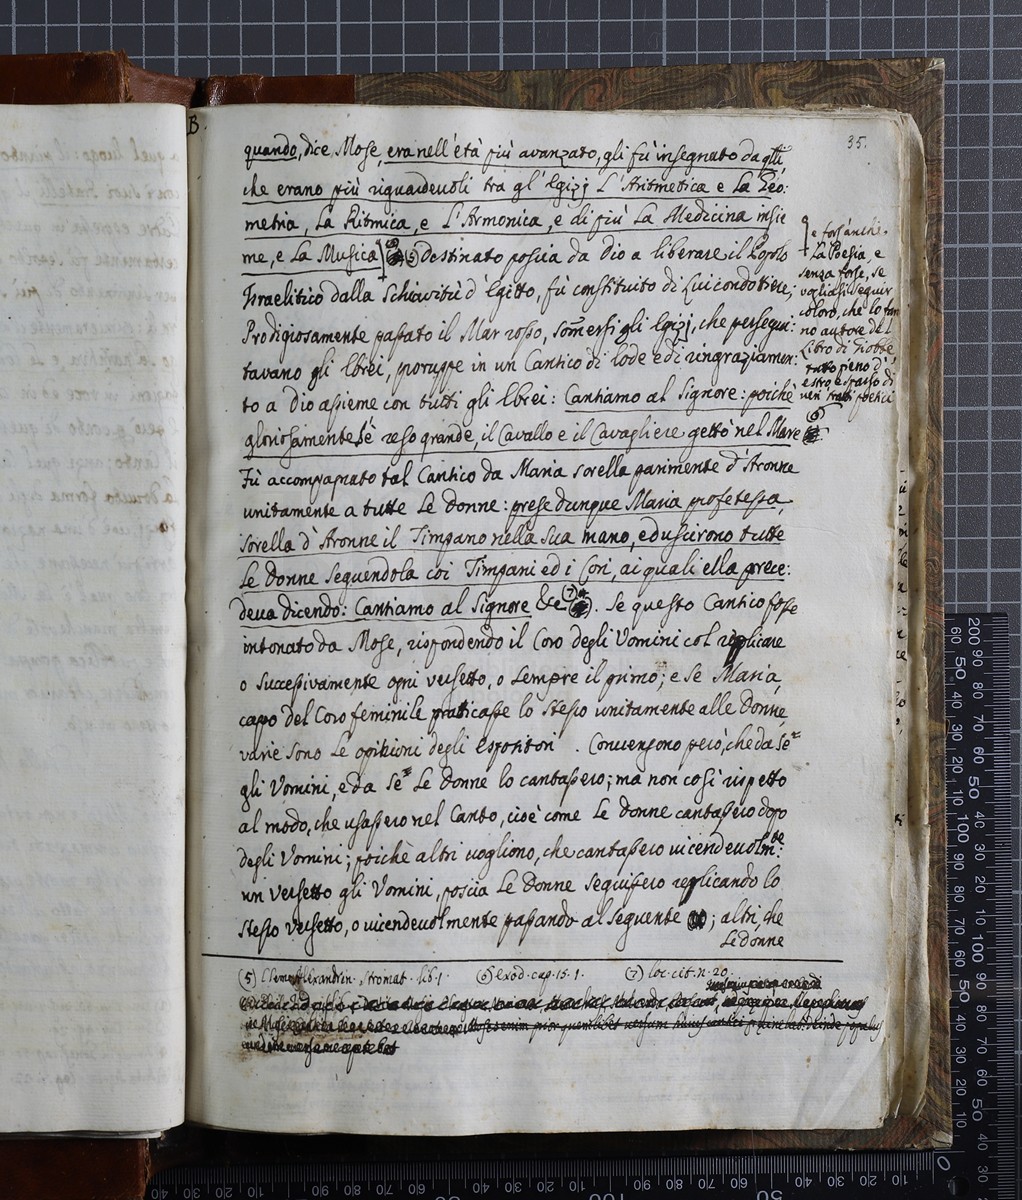 35.
quando, dice Mose, era nell'età più avanzato, gli fù insegnato da qlli,
che erano più riguardevoli tra gl'Egizj L'Aritmetica e La Geo:
metria, La Ritmica, e L'Armonica, e di più La Medicina insie
me, e La Musica (5) Destinato poscia da Dio a liberare il Popolo
Israelitico dalla Schiavitù d'Egitto, fù constituito di Lui condottiere;
Prodigiosamente passato il Mar rosso, somersi gli Egizj, che persegui:
tavano gli Ebrei, proruppe in un Cantico di lode e di ringraziamen:
to a Dio assieme con tutti gli Ebrei: Cantiamo al Signore: poichè
gloriosamente s'è reso grande, il Cavallo e il Cavagliere gettò nel Mare (6)
Fù accompagnato tal Cantico da Maria sorella parimente d'Aronne
unitamente a tutte Le Donne: prese dunque Maria profetessa,
sorella d'Aronne il Timpano nella sua mano, ed uscirono tutte
Le donne seguendola coi Timpani ed i Cori, ai quali ella prece:
deva dicendo: Cantiamo al Signore &c (7). Se questo Cantico fosse
intonato da Mose, rispondendo il Coro degli Uomini col replicare
o successivamente ogni versetto, o sempre il primo; e se Maria,
capo del Coro feminile praticasse lo stesso unitamente alle Donne,
varie sono Le opinioni degli Espositori. Convengono però, che da sè
gli Uomini, e da sè Le donne lo cantassero; ma non così rispetto
al modo, che usassero nel Canto, cioè come Le donne cantassero dopo
degli Uomini; poichè altri vogliono, che cantassero vicendevolm:te
un versetto gli Uomini, poscia Le donne seguissero replicando lo
stesso versetto, o vicendevolmente passando al seguente; altri, che
Le donne
e fors'anche
La Poesia, e
senza forse, se
vogliasi seguir
coloro, che lo fan
no autore del
Libro di Giobbe,
tutto pieno d'
estro, e sparso di
veri tratti poetici
(5) Clemens Alexandrin. Stromat. Lib. 1. (6) Exod. cap. 15. 1. (7) loc. cit. n. 20.